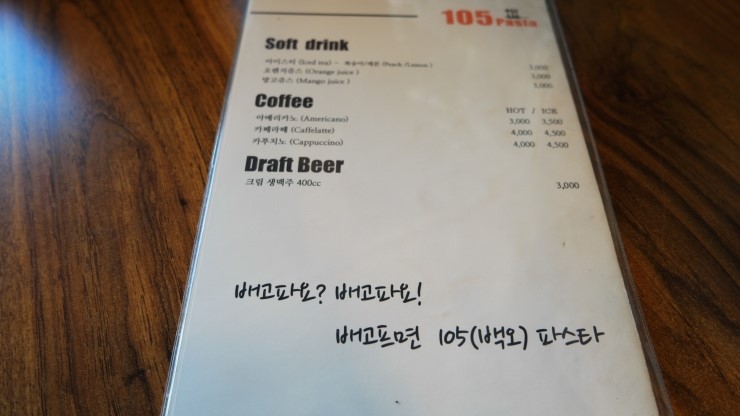 105 Pasta
Soft drink
아이스티 (Iced tea) - 복숭아/레몬 (Peach /Lemon ) 3,000
오렌지쥬스 (Orange juice ) 3,000
망고쥬스 (Mango juice ) 3,000
Coffee HOT / ICE
아메리카노 (Americano) 3,000 3,500
카페라떼 (Caffelatte) 4,000 4,500
카푸치노 (Cappuccino) 4,000 4,500
Draft Beer
크림 생맥주 400cc 3,000
배고파요? 배고파요!
배고프면 105(백오) 파스타